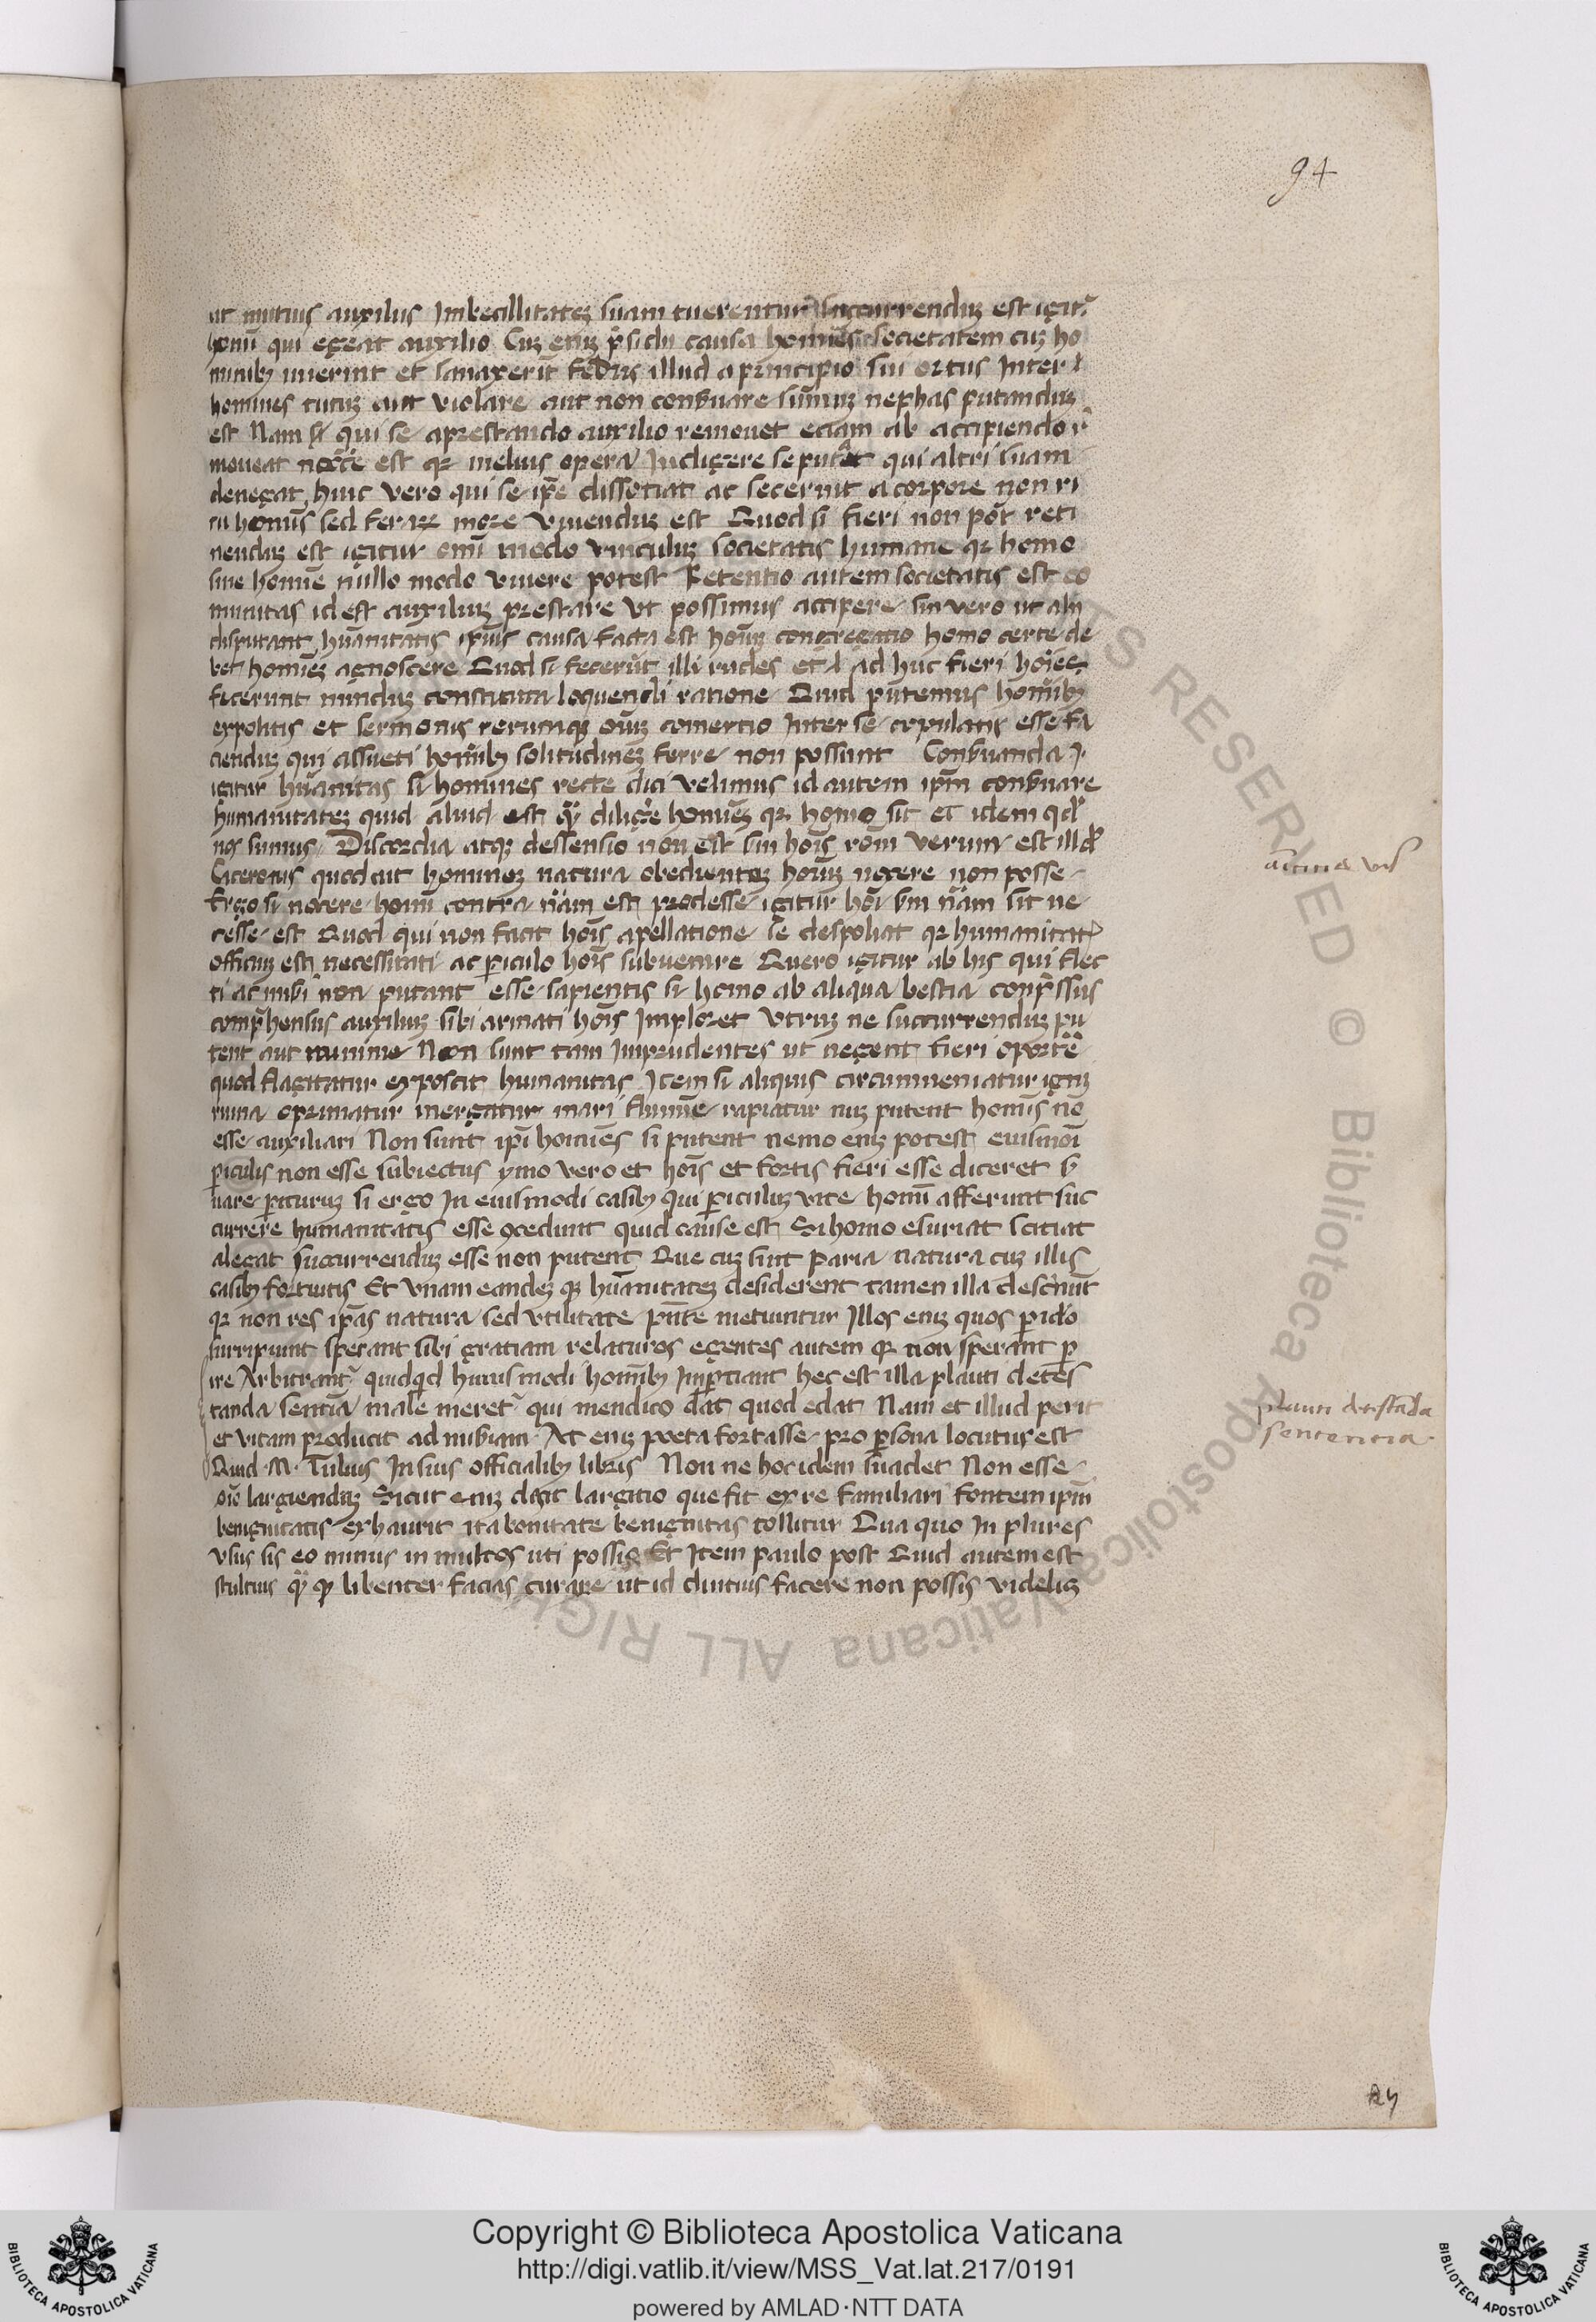 94
ut mutuis auxiliis Imbecillitatez suam tuerentur Succurrenduz est igitr̃
homī qui egeat auxilio Cuz enuz p̃sidii causa homīes societatem cuz ho
minibꝫ inierint et sanaxerīt fedus illud a principio sui ortus Inter
homines rutuz aut violare aut non conẜuare sūmuz nephas putanduz
est Nam si qui se aprestando auxilio remouet eciam ab accipiendo r̃
moueat necc̄e est qꝛ melius opera Indigere se putat qui altri suam
denegat huic vero qui se ip̄e dissotiat ac secernit a corpore non ri
tu homīs sed feraꝝ more viuenduz est Quod si fieri non pōt reti
nenduz est igitur omī modo vinculuz societatis humane qꝛ homo
sine homīe nullo modo viuere potest Retentio autem societatis est co
munitas id est auxiliuz prestare vt possimus accipere sin vero ut alii
disputant hūanitatis ipīus causa facta est hoīuz congregatio homo certe de
bet homīez agnoscere Quod si fecerūt illi rudes et ad huc fieri hoīes
fecerunt nunduz constituta loquendi ratione Quid putemus homībꝫ
expolitis et sermonis rerumqꝫ oīuz comertio Inter se copulatis esse fa
ciendūz qui assueti homībꝫ solitudinez ferre non possunt Conẜuanda
igitur hūanitas si homines recte dici velimus id autem ip̄m conẜuare
humanitatez quid aliud est qꝫ̃ diligẽre homīez qꝛ homo sit et idem qd̃
nos sumus Discordia atqꝫ dessensio non est ẜm hoīs rōm verum est illd̃
Ciceronis quod ait hominez natura obedientez hoīuz nocere non posse
Ergo si nocere homī contra nām est prodesse igitur hōi ẜm nām sit ne
cesse est Quod qui non facit hoīs apellatione se despoliat qꝛ humanitat
officiuz est necessitati ac ꝑiculo hoīs subuenire Quero igitur ab his qui flec
ti ac miẜi non putant esse sapientis si homo ab aliqua bestia conp̃ssus
comp̃hensus auxiliuz sibi armati hoīs Imploret vtruz ne succurrenduz pu
tent aut minime Non sunt tam Imprudentes ut negent fieri oportẽ
quod flagitatur exposcit humanitas Item si aliquis circumueniatur igni
ruina oprimatur mergatur mari flumīe rapiatur nuz putent homīs nō
esse auxiliari Non sunt ipī homīes si putent nemo enuz potest euismōi
ꝑiculis non esse subiectus ymo vero et hoīs et fortis fieri esse diceret ẜ
uare ꝑituruz si ergo In euismodi casibꝫ qui ꝑiculuz vite homī afferunt suc
currere humanitatis esse ꝯcedunt quid cause est Si homo esuriat scitiat
alegat succurrenduz esse non putent Que cuz sint paria natura cuz illis
casibꝫ fortuitis Et vnam eandez qꝫ hūanitatez desiderent tamen illa descẽnūt
qꝛ non res ipās natura sed vtilitate pn̄te metiuntur Illos enuz quos ꝑicło
surripiunt sperant sibi gratiam relaturos egentes autem qꝛ non sperant ꝑ
ire Arbitrantr̃ quidq̄d huiusmodi homībꝫ Imꝑtiant hec est illa plauti detes
tanda sentēia male meretr̃ qui mendico dat quod edat Nam et illud perit
et vitam producit ad miẜiam At enuz poeta fortasse pro ꝑsona locutus est
Quid .M. Tulius In suis officialibꝫ libris Non ne hoc idem suadet Non esse
oīo largienduz Sicut enuz dixit largitio que fit ex re familiari fontem ip̄m
benignitatis exhaurit ita bonitate benignitas tollitur Qua quo In plures
vsus sis eo minus in multos uti possis Et Item paulo post Quid autem est
stultius qꝫ̃ qꝫ libenter facias curare ut id diutius facere non possis videlicz
plauti detestāda
sentencia
Copyright © Biblioteca Apostolica Vaticana
http://digi.vatlib.it/view/MSS_Vat.lat.217/0191
powered by AMLAD·NTT DATA
BIBLIOTECA APOSTOLICA VATICANA
BIBLIOTECA APOSTOLICA VATICANA
ALL RIGHTS RESERVED © Biblioteca Apostolica Vaticana